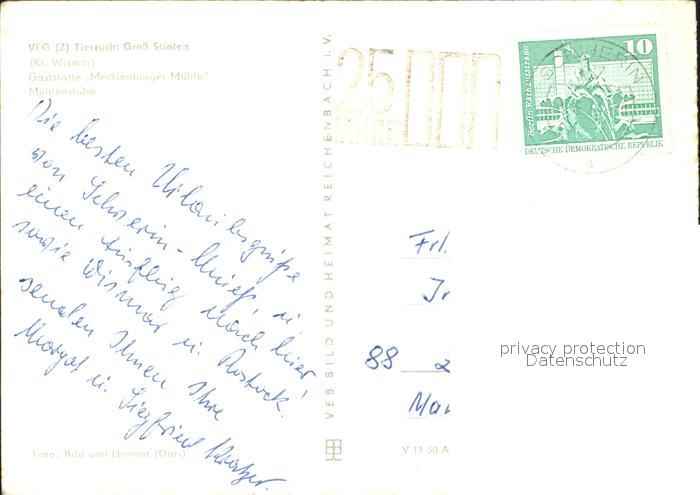 VEG (Z) Tierzucht Groß Stieten
(Kr. Wismar)
Gaststätte „Mecklenburger Mühle"
Mühlenstube
Die besten Urlaubsgrüße
von Schwerin-Mueß, u.
einen Ausflug nach hier
sowie Wismar u. Rostock!
senden Ihnen Ihre
Margot u. Siegfried
Foto: Bild und Heimat (Darr)
VEB BILD UND HEIMAT REICHENBACH I. V.
V 11 50 A
25
JAHRE
DDR
SCHWERIN
10
Berlin, Rathausstraße
DEUTSCHE DEMOKRATISCHE REPUBLIK
Frl.
88 2
privacy protection
Datenschutz